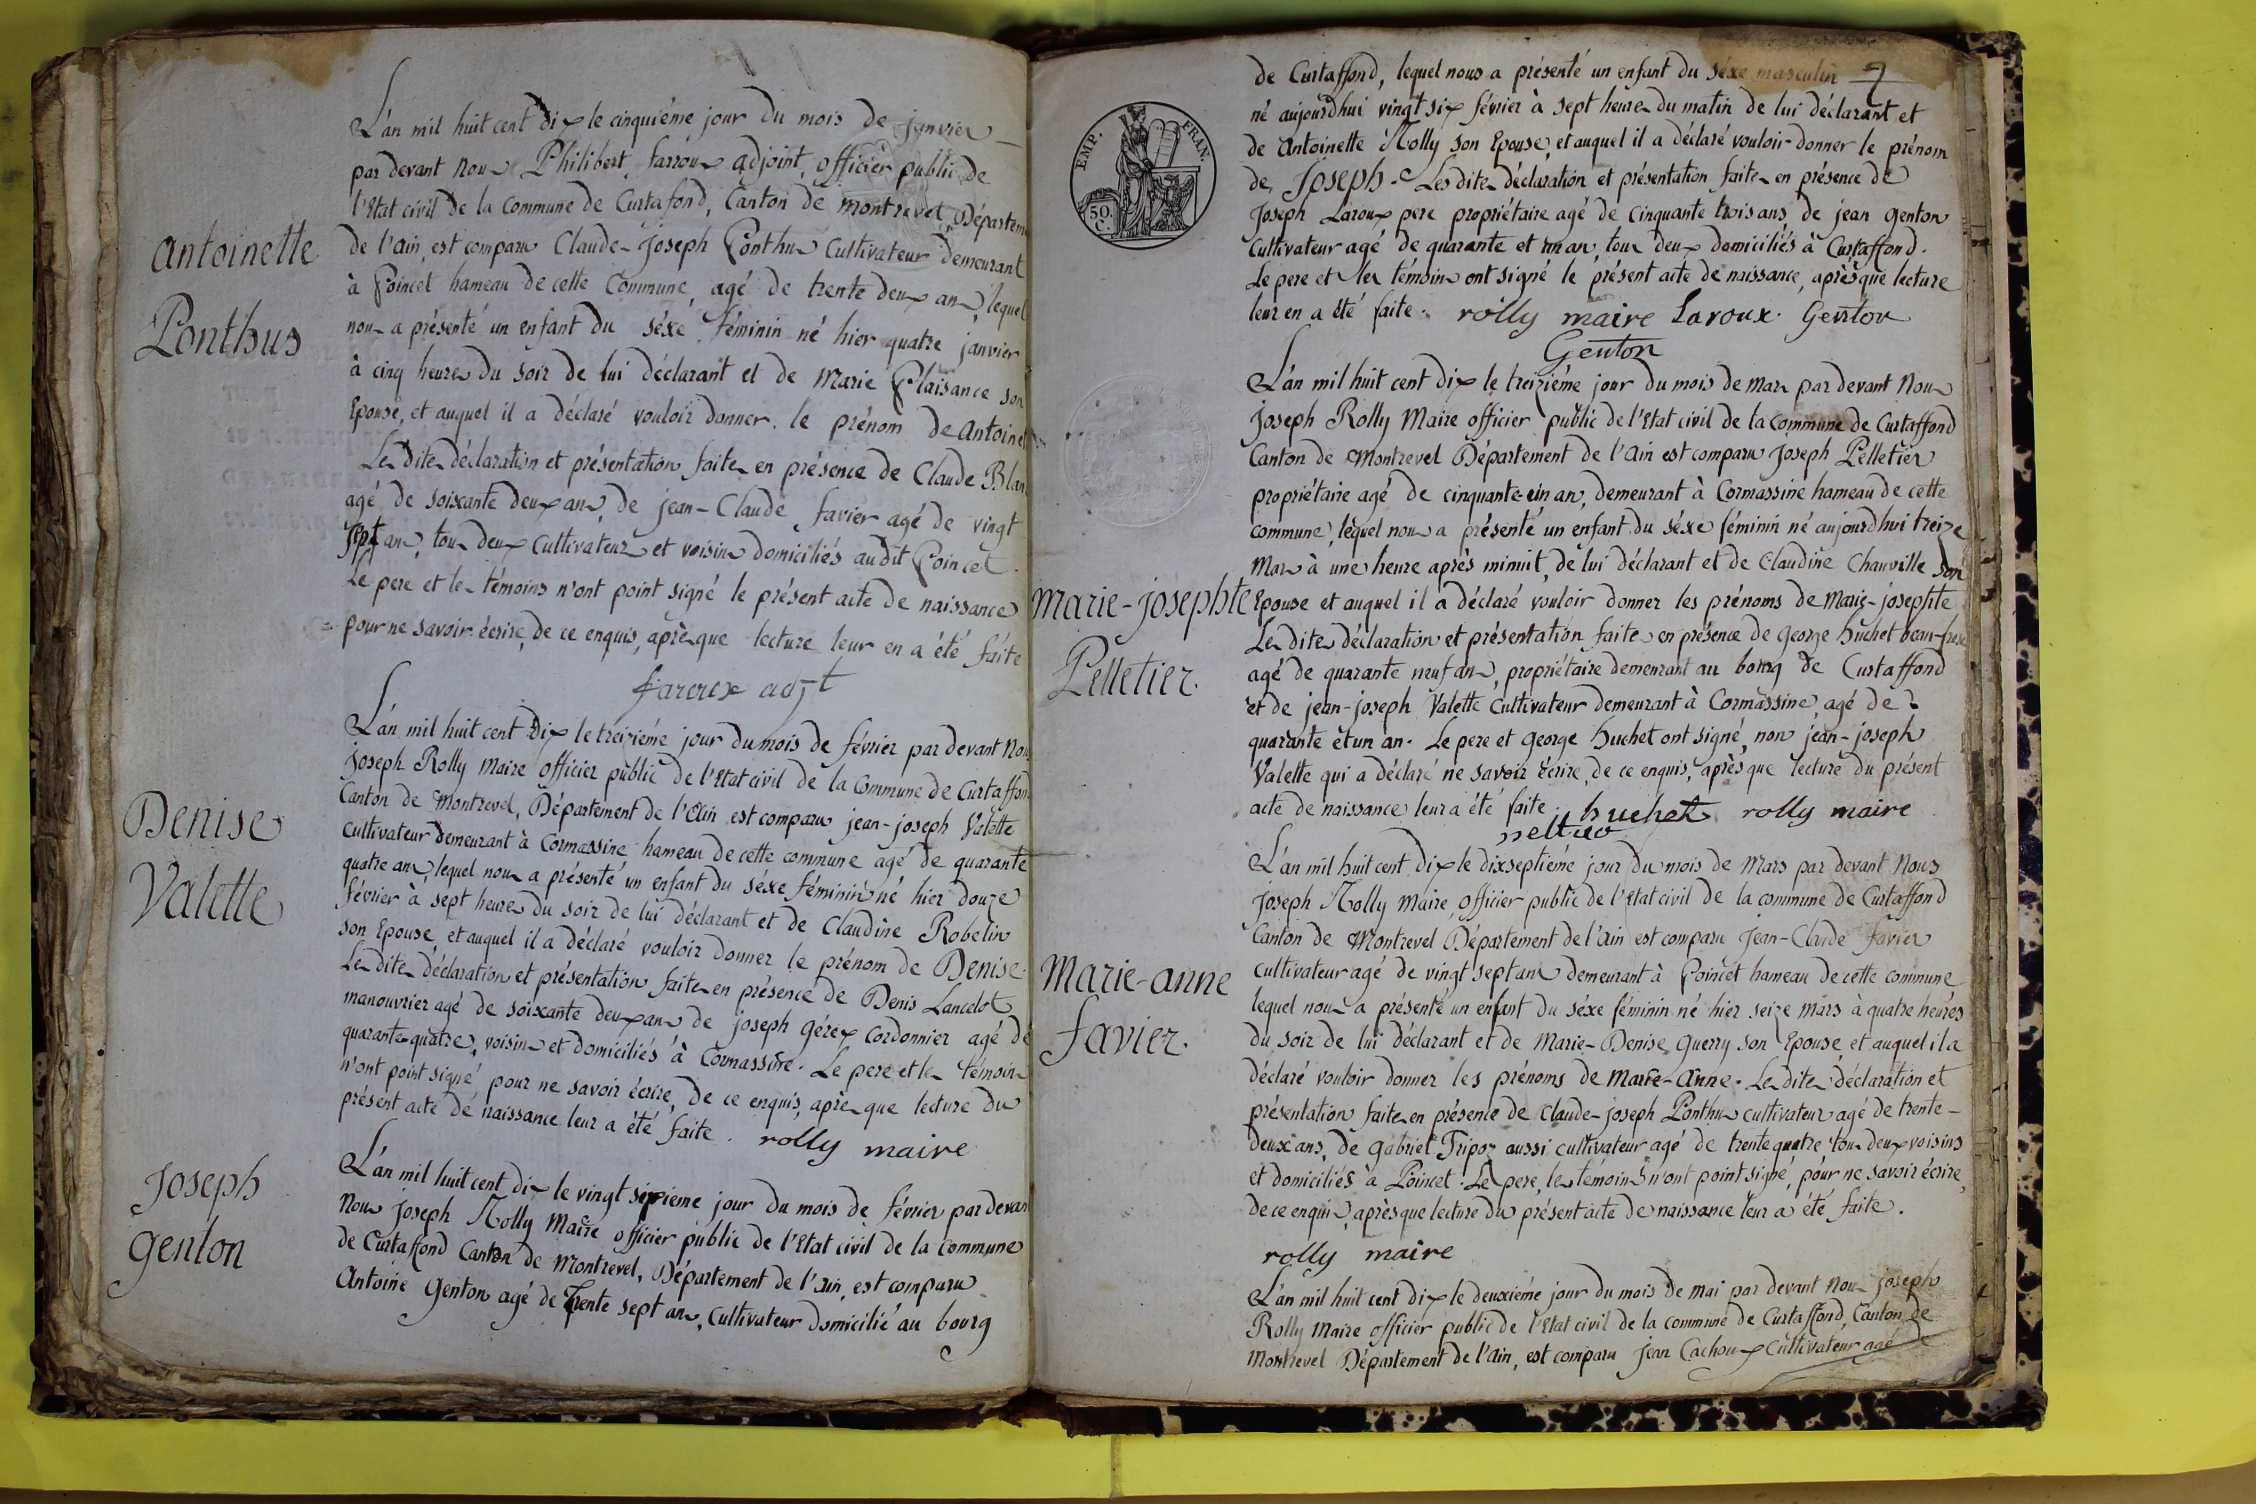 L'an mil huit cent dix le cinquiéme jour du mois de janvier
par devant nous Philibert farroux adjoint, officier public de
l'Etat civil de la Commune de Curtafond, Canton de Montrevel, Départem
de l'Ain, est comparu Claude-Joseph Ponthus Cultivateur demeurant
antoinette
à Poincet hameau de cette Commune, agé de trente deux ans, lequel
Ponthus
nous a présenté un enfant du séxe féminin né hier quatre janvier
à cinq heures du soir de lui déclarant et de Marie Plaisance son
Epouse, et auquel il a déclaré vouloir donner le prénom de antoinet
Les dites déclaration et présentation faites en présence de Claude Blan
agé de soixante deux ans, de jean-Claude favier agé de vingt
sept ans, tous deux cultivateurs et voisins domiciliés audit Poincet.
Le pere et les témoins n'ont point signé le présent acte de naissance
pour ne savoir écrire, de ce enquis, après que lecture leur en a été faite
farroux adjt
L'an mil huit cent dix le treizième jour du mois de février par devant Nous
Joseph Rolly Maire officier public de l'Etat civil de la Commune de Curtaffond
Canton de Montrevel, Département de l'Ain est comparu jean-joseph Valette
Denise
cultivateur demeurant à Cormassine hameau de cette commune agé de quarante
Valette
quatre ans, lequel nous a présenté un enfant du séxe féminin né hier douze
février à sept heures du soir de lui déclarant et de Claudine Robelin
son Epouse, et auquel il a déclaré vouloir donner le prénom de Denise.
Les dites déclaration et présentation faites en présence de Denis Lancelot
manouvrier agé de soixante deux ans de joseph gérex cordonnier agé de
quarante-quatre, voisins et domiciliés à Cormassine. Le pere et les témoins
n'ont point signé pour ne savoir écrire, de ce enquis, après que lecture du
présent acte de naissance leur a été faite. rolly maire
Joseph
genton
L'an mil huit cent dix le vingt sixieme jour du mois de février par devant
Nous joseph Rolly Maire officier public de l'Etat civil de la Commune
de Curtaffond Canton de Montrevel, Département de l'ain, est comparu
Antoine Genton agé de Trente sept ans, Cultivateur domicilié au bourg
de Curtaffond, lequel nous a présenté un enfant du séxe masculin
né aujourdhui vingt six février à sept heures du matin de lui déclarant et
de Antoinette Rolly son Epouse, et auquel il a déclaré vouloir donner le prénom
EMP. FRAN.
50.
C.
de Joseph. Les dites déclaration et présentation faites en présence de
Joseph Laroux pere propriétaire agé de cinquante trois ans, de jean genton
cultivateur agé de quarante et un an, tous deux domiciliés à Curtaffond.
Le pere et les témoins ont signé le présent acte de naissance, après que lecture
leur en a été faite. rolly maire Laroux. Genton
Genton
L'an mil huit cent dix le treizième jour du mois de Mars par devant Nous
Joseph Rolly Maire officier public de l'Etat civil de la Commune de Curtaffond
Canton de Montrevel Département de l'Ain est comparu Joseph Pelletier
propriétaire agé de cinquante-un an, demeurant à Cormassine hameau de cette
commune, lequel nous a présenté un enfant du séxe féminin né aujourdhui treize
Mars à une heure après minuit, de lui déclarant et de Claudine Chauville son
Marie-joséphte
Pelletier.
Epouse et auquel il a déclaré vouloir donner les prénoms de Marie-josephte
Les dites déclaration et présentation faites en présence de george huchet beau-frere
agé de quarante neuf ans, propriétaire demeurant au bourg de Curtaffond
et de jean-joseph Valette Cultivateur demeurant à Cormassine agé de
quarante et un an. Le pere et george huchet ont signé, non jean-joseph
Valette qui a déclaré ne savoir écrire, de ce enquis, après que lecture du présent
acte de naissance leur a été faite. huchet rolly maire
L'an mil huit cent dix le dixseptiéme jour du mois de Mars par devant Nous
Joseph Rolly Maire, officier public de l'Etat civil de la commune de Curtaffond
Canton de Montrevel Département de l'ain est comparu Jean-Claude favier
Marie-anne
favier.
cultivateur agé de vingt sept ans demeurant à Poincet hameau de cette commune
lequel nous a présenté un enfant du séxe féminin né hier seize mars à quatre heures
du soir de lui déclarant et de Marie-Denise guerry son Epouse et auquel il a
déclaré vouloir donner les prénoms de Marie-anne. Les dites déclaration et
présentation faites en présence de Claude-joseph Ponthus cultivateur agé de trente-
deux ans, de gabriel Tripoz aussi cultivateur agé de trente quatre tous deux voisins
et domiciliés à Poincet. Le pere, les témoins n'ont point signé, pour ne savoir écrire,
de ce enquis, après que lecture du présent acte de naissance leur a été faite.
rolly maire
L'an mil huit cent dix le deuxième jour du mois de mai par devant Nous joseph
Rolly Maire officier public de l'Etat civil de la commune de Curtaffond, Canton de
Montrevel Département de l'Ain, est comparu Jean Cachoux Cultivateur agé de